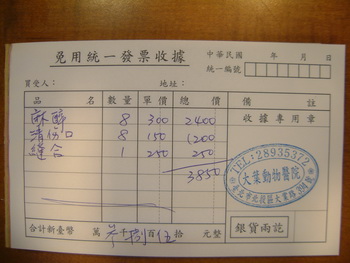 免用統一發票收據
中華民國 年 月 日
統一編號
買受人： 地址：
品 名 數量 單價 總價 備 註
麻醉 8 300 2400 收據專用章
清傷口 8 150 1200
縫合 1 250 250
3850
TEL:28935372
大葉動物醫院
台北市北投區大業路
合計新台幣 萬 參千捌百伍拾 元整
銀貨兩訖